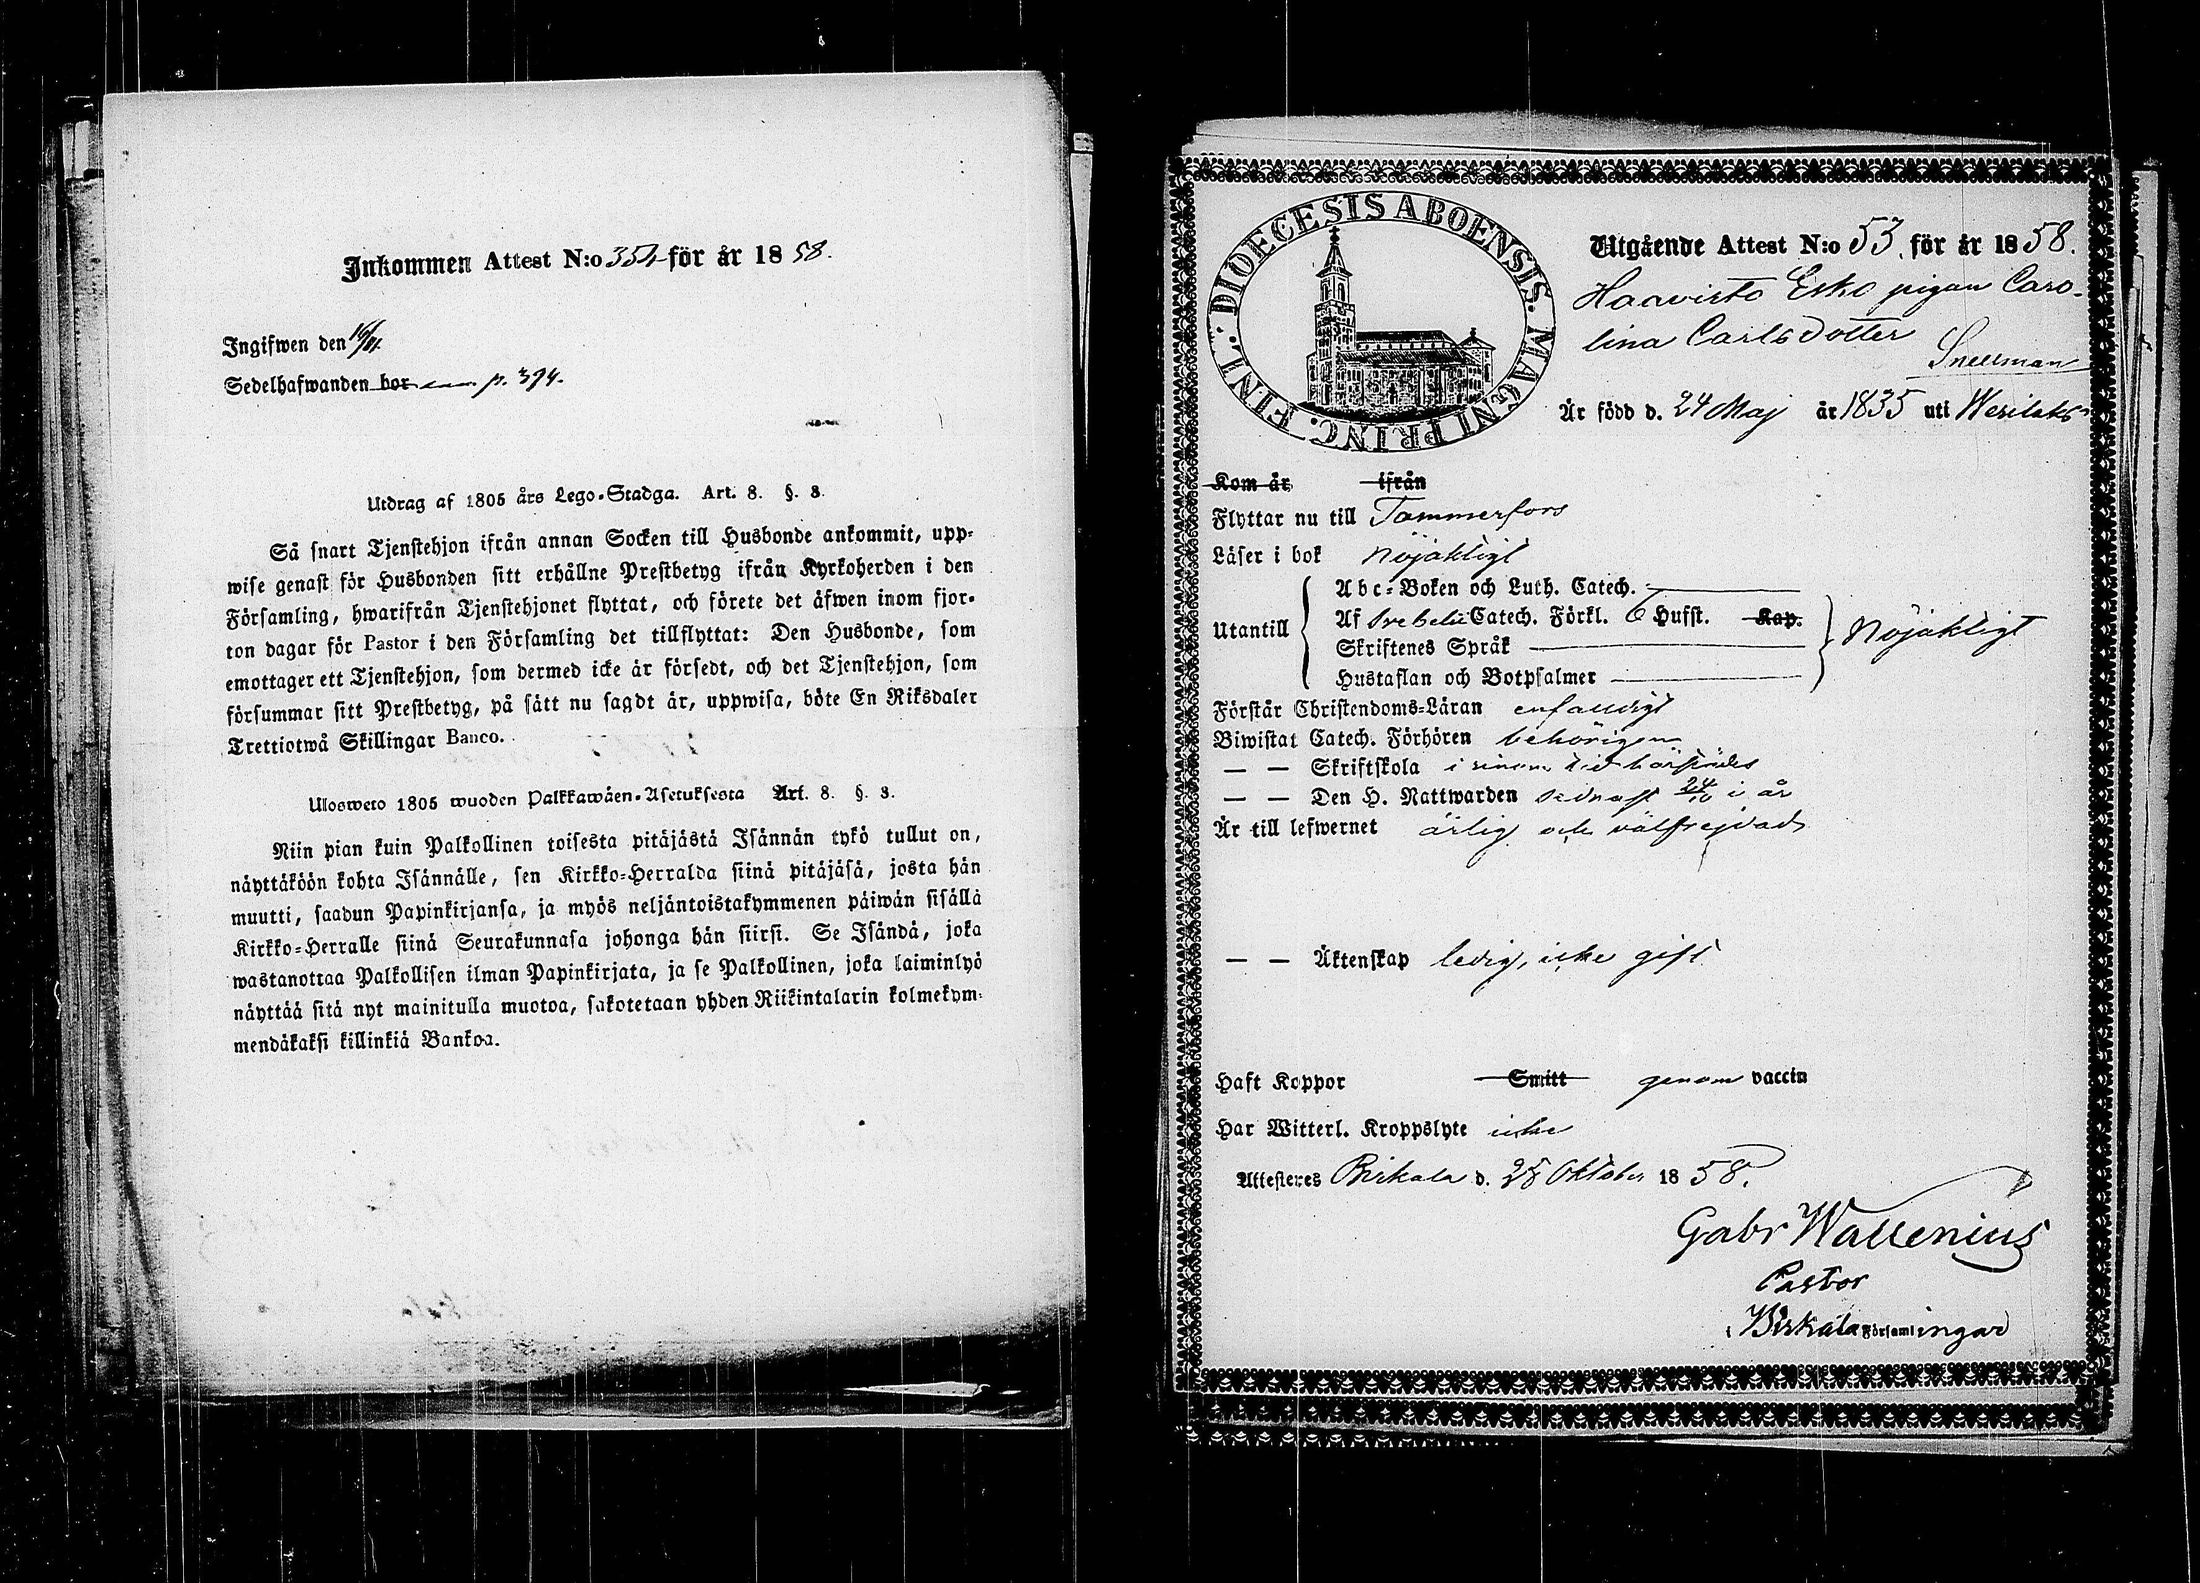 Inkommen Attest N:o 354 för år 1858.
Ingifwen den 16/11.
Sedelhafwanden bor p. 394.
Utdrag af 1805 års Lego-Stadga. Art. 8. §. 3.
Så snart Tjenstehjon ifrån annan Socken till Husbonde ankommit, upp-
wise genast för Husbonden sitt erhållne Prestbetyg ifrån Kyrkoherden i den
Församling, hwarifrån Tjenstehjonet flyttat, och förete det äfwen inom fjor-
ton dagar för Pastor i den Församling det tillflyttat: Den Husbonde, som
emottager ett Tjenstehjon, som dermed icke är försedt, och det Tjenstehjon, som
försummar sitt Prestbetyg, på sätt nu sagdt är, uppwisa, böte En Riksdaler
Trettiotwå Skillingar Banco.
Ulosweto 1805 wuoden Palkkawäen-Asetuksesta Art. 8. §. 3.
Niin pian kuin Palkollinen toisesta pitäjästä Isännän tykö tullut on,
näyttäköön kohta Isännälle, sen Kirkko-Herralda siinä pitäjäsä, josta hän
muutti, saadun Papinkirjansa, ja myös neljäntoistakymmenen päiwän sisällä
Kirkko-Herralle siinä Seurakunnasa johonga hän siirsi. Se Isändä, joka
wastanottaa Palkollisen ilman Papinkirjata, ja se Palkollinen, joka laiminlyö
näyttää sitä nyt mainitulla muotoa, sakotetaan yhden Riikintalarin kolmekym-
mendäkaksi killinkiä Bankoa.
DIOECESIS ABOENSIS. MAGNI PRINC. FINL.
Utgående Attest N:o 53. för år 1858.
Haavisto Esko pigan Caro-
lina Carlsdotter
Snellman
Är född d. 24 Maj år 1835 uti Wesilaks
Kom år ifrån
Flyttar nu till Tammerfors
Läser i bok nöjaktigt
Utantill
Abc-Boken och Luth. Catech.
Af Svebelii Catech. Förkl. 6 Hufst. Kap.
Skriftenes Språk
Hustaflan och Botpsalmer
nöjaktigt
Förstår Christendoms-Läran enfaldigt
Biwistat Catech. Förhören behörigen
— — Skriftskola i sinom tid härstädes
— — Den H. Nattwarden sednast 24/10 i år
Är till lefwernet ärlig och välfrejdad
— — Äktenskap ledig, icke gift
Haft Koppor Smitt genom vaccin
Har Witterl. Kroppslyte icke
Attesteres Birkala d. 25 Oktober 1858.
Gabr Wallenius
Pastor
i Birkala Församlingar